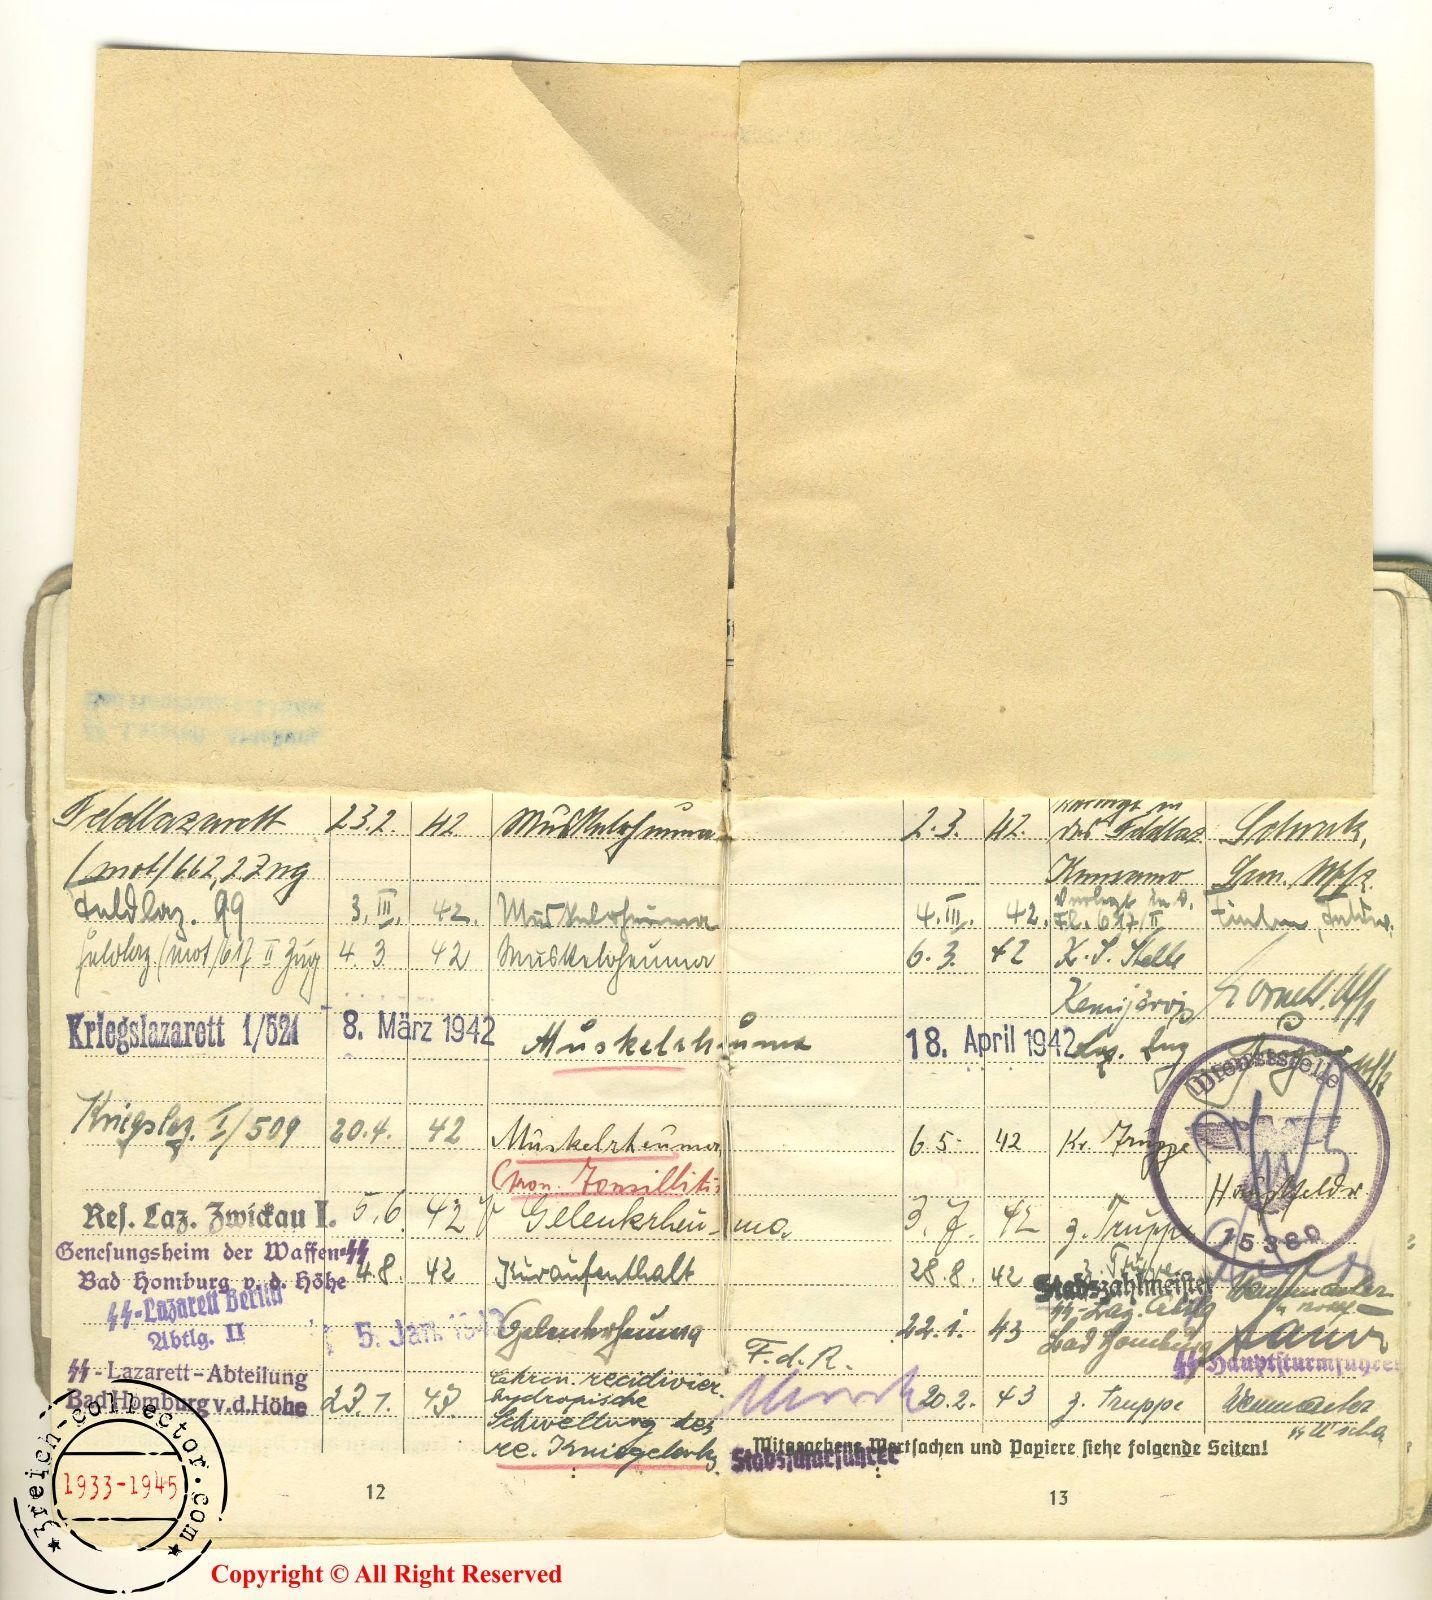 Feldlazarett 23.2. 42 Muskelrheuma 2.3. 42. das Feldlaz
(mot) 662, 2 Zug
Feldlaz. 99 3. III. 42. Muskelrheuma 4. III. 42. Fl. 617/II
Feldlaz. (mot) 617 II Zug 4. 3 42 Muskelrheuma 6. 3. 42 K. S. Stelle
Kemijärvi
Kriegslazarett 1/521 8. März 1942 Muskelrheuma 18. April 1942 Laz. Zug
Dienststelle
Kriegslaz. I/509 20.4. 42 Muskelrheuma 6.5. 42 Kr. Truppe
Chron. Tonsillitis
Res. Laz. Zwickau I. 5.6. 42 Gelenkrheuma. 3. 7. 42 z. Truppe
15380
Genesungsheim der Waffen-SS
Bad Homburg v. d. Höhe 4.8. 42 Kuraufenthalt 28.8. 42 z. Truppe
Stabszahlmeister
SS-Lazarett Berlin
Abtlg. II 5. Jan. 1943 Gelenkrheuma 22.1. 43 Bad Homburg
F.d.R.
SS-Hauptsturmführer
SS-Lazarett-Abteilung
Bad Homburg v.d.Höhe 23.1. 43. chron. recidivier.
hydropische
Schwellung des
re. Kniegelenks 20.2. 43 z. Truppe
Mitgegebene Wertsachen und Papiere siehe folgende Seiten!
Stabsscharführer
12
13
3reich-collector.com
1933-1945
Copyright © All Right Reserved